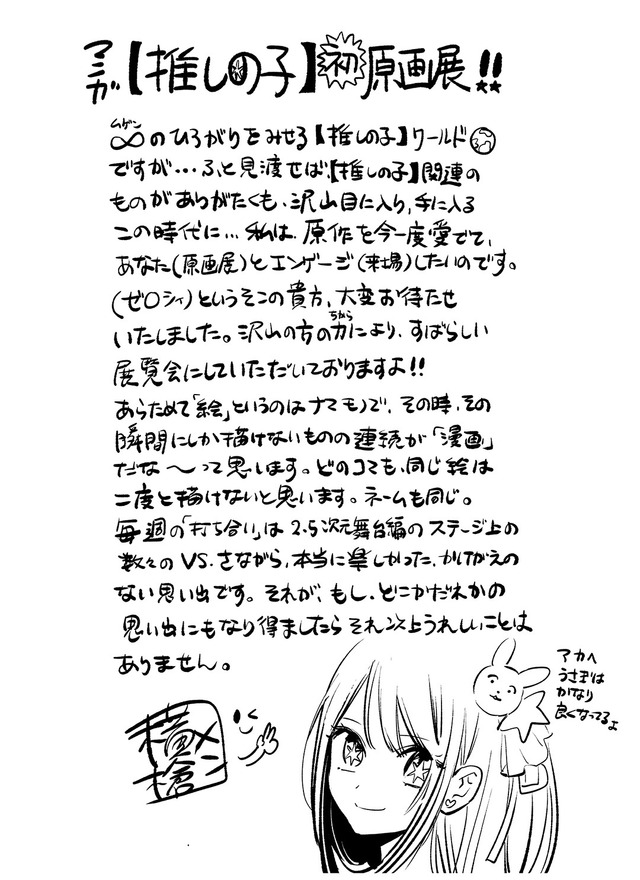 マンガ【推しの子】初原画展!!
ムゲン
∞のひろがりをみせる【推しの子】ワールド
ですが…ふと見渡せば【推しの子】関連の
ものがありがたくも、沢山目に入り、手に入る
この時代に…私は、原作を今一度愛でて、
あなた(原画展)とエンゲージ(来場)したいのです。
(ゼ〇シィ)というそこの貴方、大変お待たせ
ちから
いたしました。沢山の方の力により、すばらしい
展覧会にしていただいておりますよ!!
あらためて「絵」というのはナマモノで、その時、その
瞬間にしか描けないものの連続が「漫画」
だな〜って思います。どのコマも、同じ絵は
二度と描けないと思います。ネームも同じ。
毎週の「打ち合い」は2.5次元舞台編のステージ上の
数々のVS.さながら、本当に楽しかった、かけがえの
ない思い出です。それが、もし、どこかだれかの
思い出にもなり得ましたらそれ以上うれしいことは
ありません。
アカへ
うさ耳は
かなり
良くなってるよ
横槍メンゴ